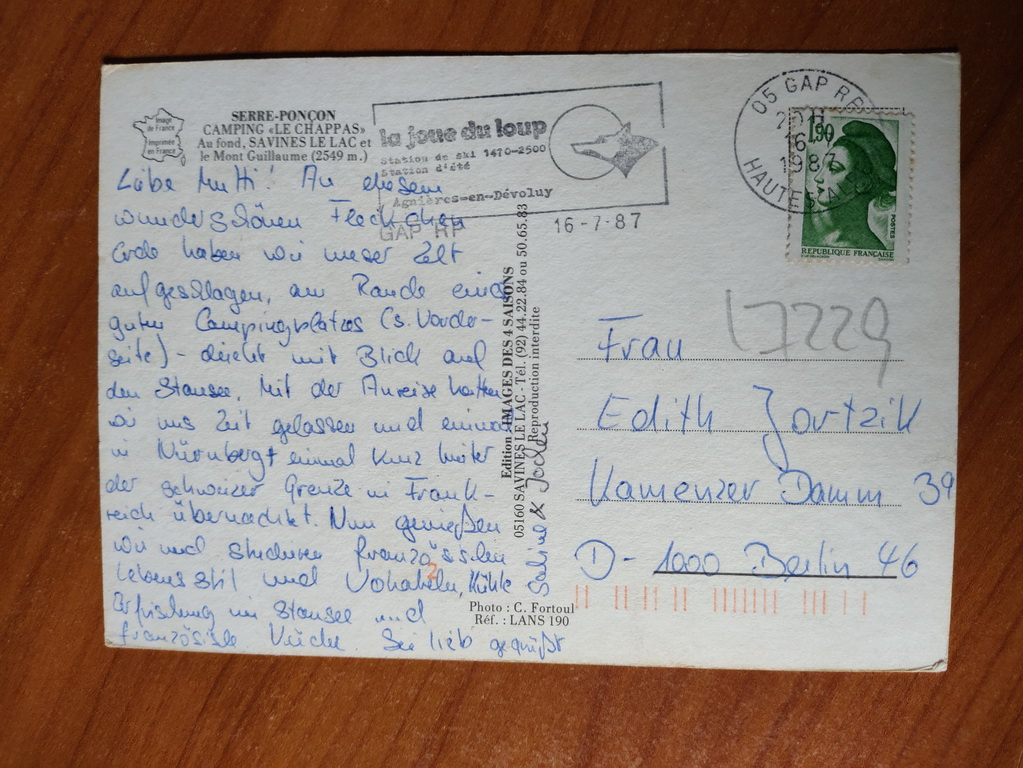 Image
de France
imprimée
en France
SERRE-PONÇON
CAMPING «LE CHAPPAS»
Au fond, SAVINES LE LAC et
le Mont Guillaume (2549 m.)
la joue du loup
Station de ski 1470-2500
Station d'été
Agnières-en-Dévoluy
GAP RP
16-7-87
05 GAP RP
20H
16
1987
HAUTES ALPES
1,90
POSTES
REPUBLIQUE FRANÇAISE
Liebe Mutti! An diesem
wunderschönen Fleckchen
Erde haben wir unser Zelt
aufgeschlagen, am Rande eines
guten Campingplatzes (s. Vorder-
seite) - direkt mit Blick auf
den Stausee. Mit der Anreise hatten
wir uns Zeit gelassen und einmal
in Nürnberg + einmal kurz hinter
der schweizer Grenze in Frank-
reich übernachtet. Nun genießen
wir und studieren französischen
Lebensstil und Vokabeln, kühle
Erfrischung im Stausee und
französische Küche. Sei lieb gegrüßt
Sabine & Jochen
Edition «IMAGES DES 4 SAISONS
05160 SAVINES LE LAC - Tél. (92) 44.22.84 ou 50.65.83
Reproduction interdite
Photo : C. Fortoul
Réf. : LANS 190
2
17229
Frau
Edith Jortzik
Kamenzer Damm 39
D-1000 Berlin 46